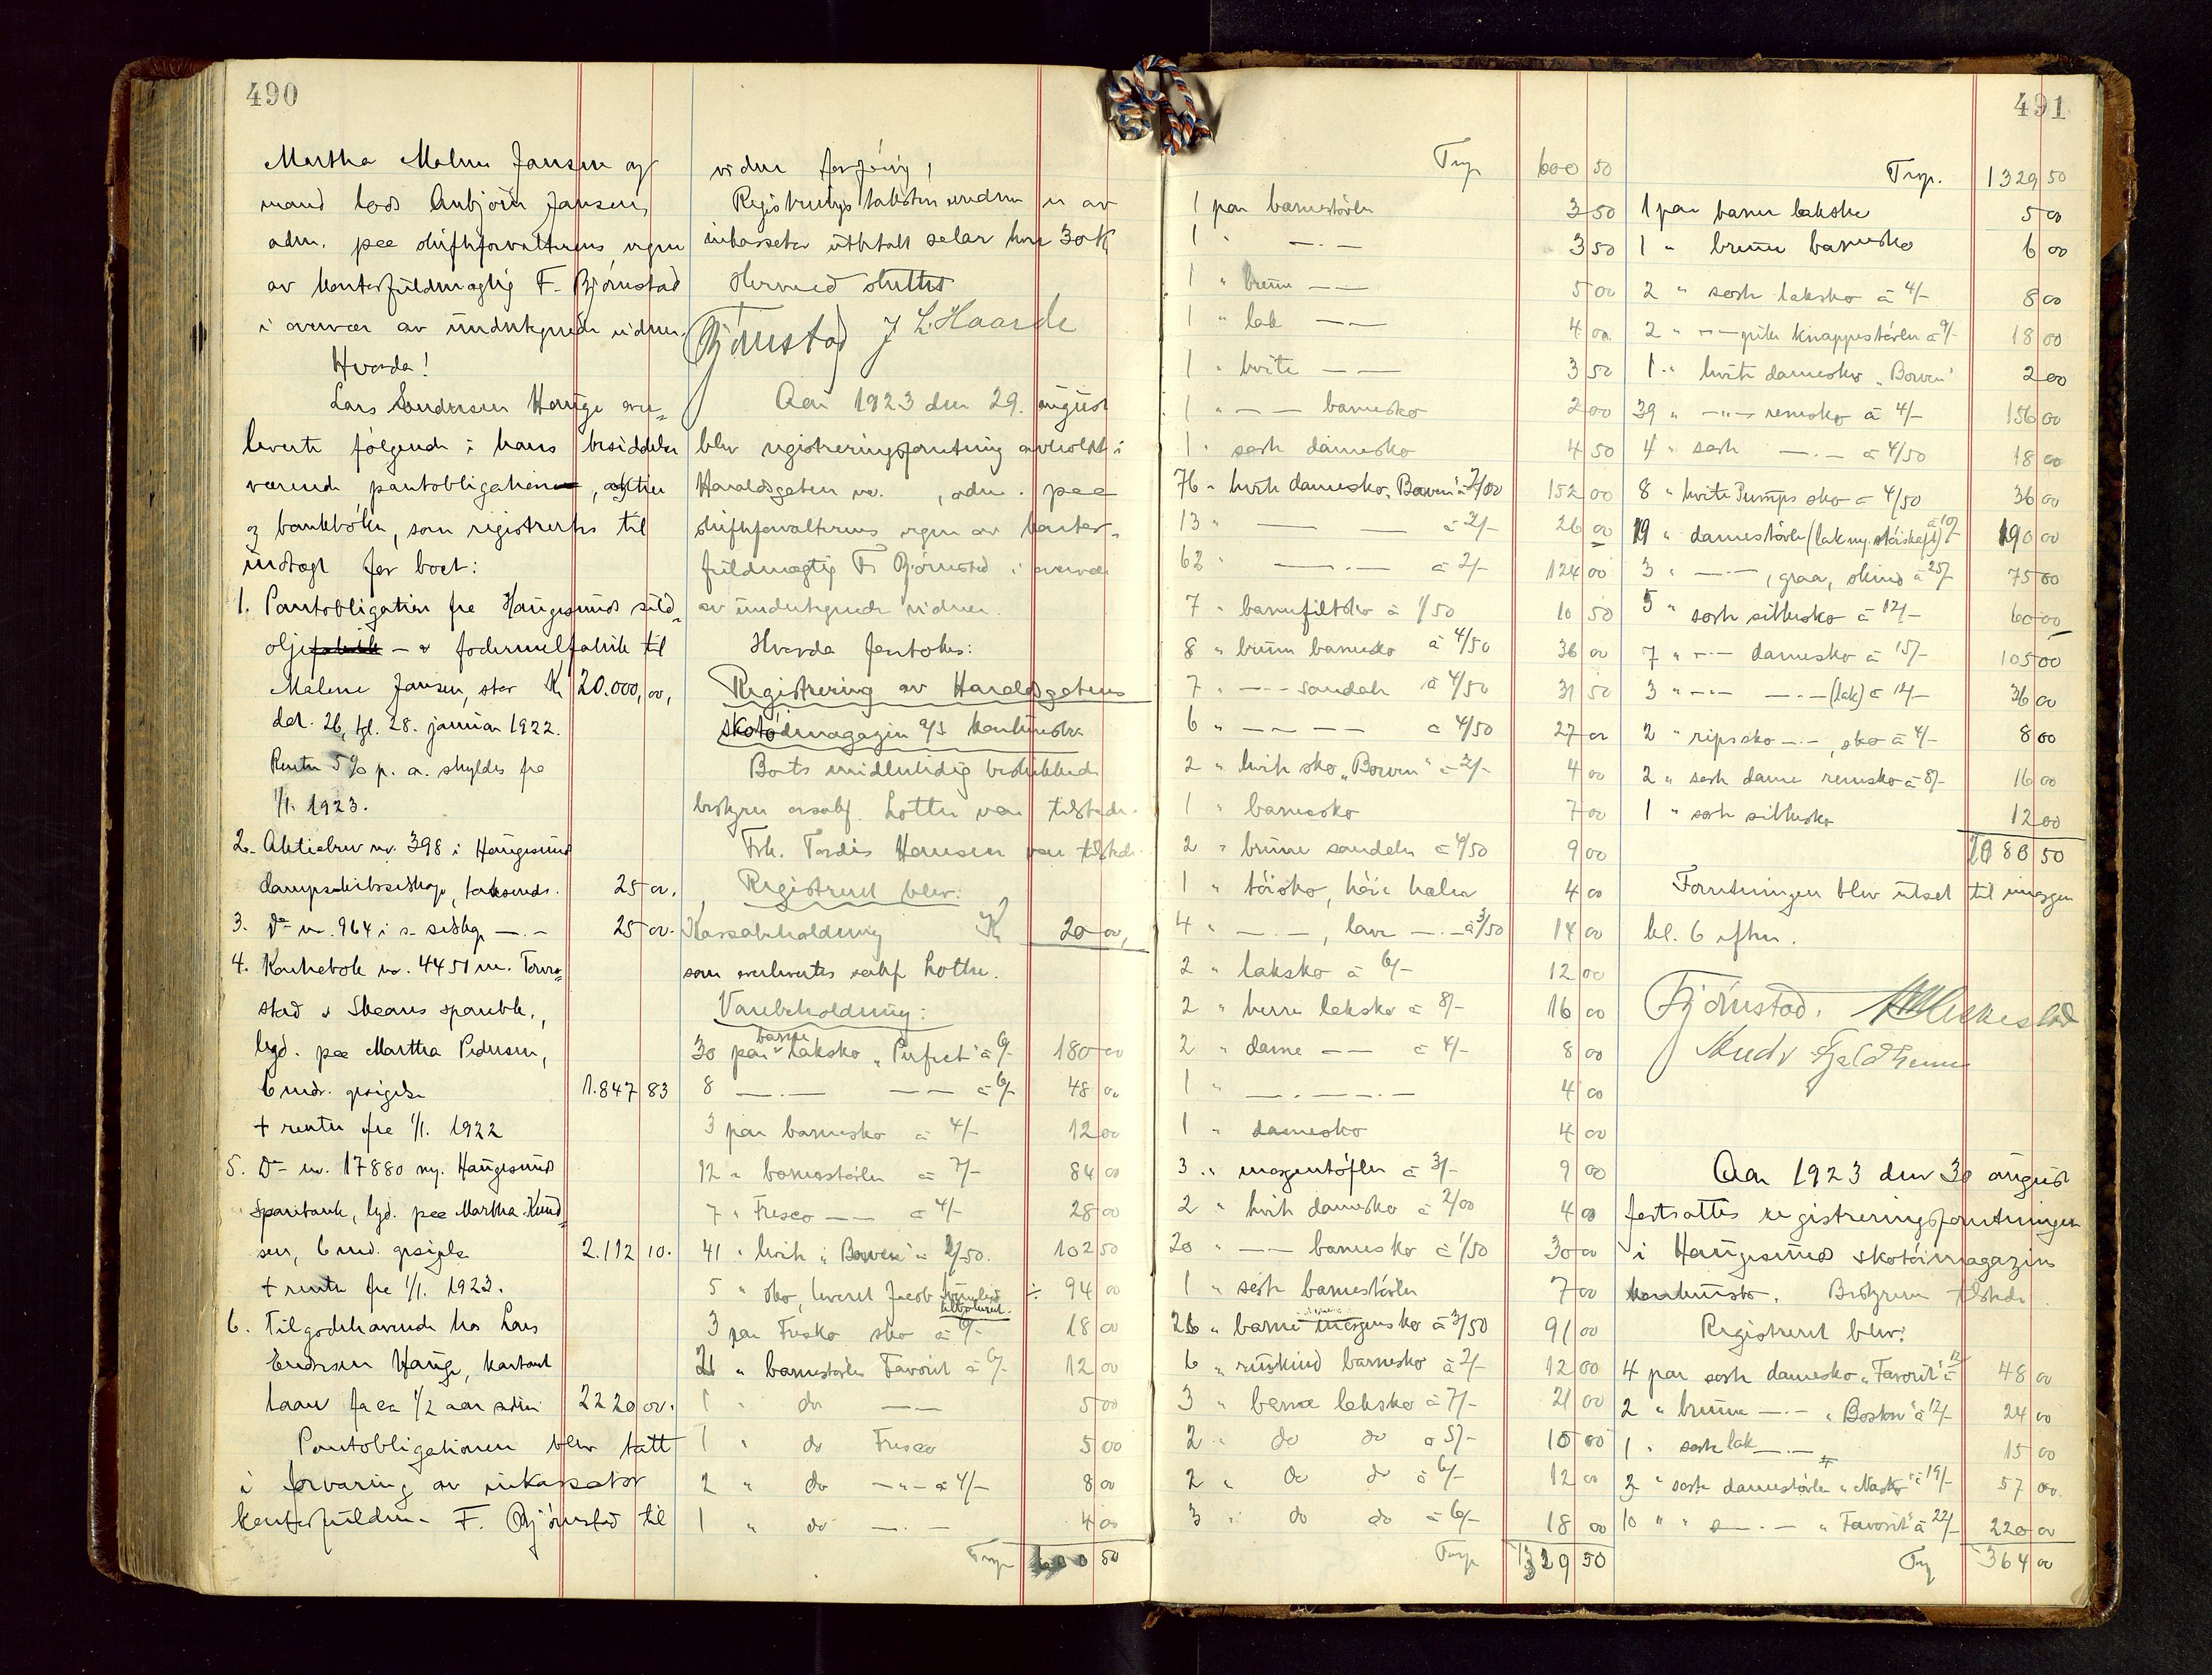 490
Martha Malene Jansen og
mand lods Anbjörn Jansen,
adm. paa skifteforvalterens vegne
av kontorfuldmægtig F. Bjørnstad
i overvær av undertegnede vidner.
Hvorda!
Lars Endresen Hauge over=
leverte følgende i hans besiddelse
værende pantobligation, aktier
og bankbøker, som registrertes til
indtægt for boet:
1. Pantobligation fra Haugesunds sild=
olje - & fodermelfabrik til
Malene Jansen, stor Kr 20.000,00,
dat. 26, tgl. 28. januar 1922.
Rente 5% p. a. skyldes fra
1/1. 1923.
2. Aktiebrev nr. 398 i Haugesund
dampskibsselskap, lydende 25 00.
3. Do nr. 964 i s. selskap —.— 25 00.
4. Kontrabok nr. 4451 m. Torva=
stad & Skaares sparebk.,
lyd. paa Martha Pedersen,
6 mdr. opsigelse 1.847 83
+ renter fra 1/1. 1922
5. Do nr. 17880 m. Haugesund
Sparebank, lyd. paa Martha Knud=
sen, 6 md. opsigelse 2.112 10.
+ renter fra 1/1. 1923.
6. Tilgodehavende hos Lars
Endresen Hauge, kontant
laan for ca 1/2 aar siden 2220 00.
Pantobligationen blev tatt
i forvaring av inkassator
kontorfuldm. F. Bjørnstad til
videre forføining,
Registreringstaksten er av
inkassator utbetalt selar hver 30 K
Hermed sluttet
Bjørnstad J L. Haarde
Aar 1923 den 29. august
blev registreringsforretning avholdt i
Haraldsgaten nr. , adm. paa
skifteforvalterens vegne av kontor-
fuldmægtig F. Bjørnstad i overvær
av undertegnede vidner.
Hvorda foretokes:
Registrering av Haraldsgatens
skotøimagazin a/s konkursbo
Boets midlertidig beskikkede
bestyrer orsakf. Lothe var tilstede.
Frk. Tordis Hansen var tilstede.
Registreret blev:
Kassabeholdning Kr 20 00,
som overlevertes sakf. Lothe.
Varebeholdning:
30 par barne laksko "Perfect" à 6/- 180 00
8 —.— —— à 6/- 48 00
3 par barnesko à 4/- 12 00
12 " barnestøvler à 7/- 84 00
7 " Fresco —— à 4/- 28 00
41 " hvite "Bowen" à 2/50. 102 50
5 " sko, leveret Jacob ÷ 94 00
3 par Fresko sko à 6/- 18 00
2 " barnestøvler Favorit à 6/- 12 00
1 " do —— 5 00
1 " do Fresco 5 00
2 " do —"— à 4/- 8 00
1 " do —.— 4 00
Trp 600 50
491
Trp 600 50
1 par barnestøvler 3 50
1 " —.— 3 50
1 " brune —— 5 00
1 " lak —— 4 00
1 " hvite —— 3 50
1 " —— barnesko 2 00
1 " sorte damesko 4 50
76 " hvite damesko "Bowen" à 2/00 152 00
13 " —— —— à 2/- 26 00
62 " —.— à 2/- 124 00
7 " barnefiltsko à 1/50 10 50
8 " brune barnesko à 4/50 36 00
7 " —.— sandaler à 4/50 31 50
6 " —— —— à 4/50 27 00
2 " hvite sko "Bowen" à 2/- 4 00
1 " barnesko 7 00
2 " brune sandaler à 4/50 9 00
1 " tøisko, høie hæler 4 00
4 " —.—, lave —.— à 3/50 14 00
2 " laksko à 6/- 12 00
2 " herre laksko à 8/- 16 00
2 " dame —— à 4/- 8 00
1 " —.—.— 4 00
1 " damesko 4 00
3 " morgentøfler à 3/- 9 00
2 " hvite damesko à 2/00 4 00
20 " —— barnesko à 1/50 30 00
1 " sorte barnestøvler 7 00
26 " barne morgensko à 3/50 91 00
6 " ruskind barnesko à 2/- 12 00
3 " barne laksko à 7/- 21 00
2 " do do à 5/- 10 00
2 " do do à 6/- 12 00
3 " do do à 6/- 18 00
Trp 1329 50
Trp. 1329 50
1 par barne laksko 5 00
1 " brune barnesko 6 00
2 " sorte laksko à 4/- 8 00
2 " —— pike knappestøvler à 9/- 18 00
1 " hvite damesko "Bowen" 2 00
39 " —"— remsko à 4/- 156 00
4 " sorte —.— à 4/50 18 00
8 " hvite Pumps sko à 4/50 36 00
19 " damestøvler (lak m. tøiskaft) à 10/- 190 00
3 " —.—, graa, skind à 25/- 75 00
5 " sorte silkesko à 12/- 60 00
7 " —.— damesko à 15/- 105 00
3 " —.— —.— (lak) à 12/- 36 00
2 " ripssko —.—, sko à 4/- 8 00
2 " sorte dame remsko à 8/- 16 00
1 " sorte silkesko 12 00
2080 50
Forretningen blev utsat til imorgen
kl. 6 efterm.
Bjørnstad.
Andr Fjeldheim
Aar 1923 den 30 august
fortsattes registreringsforretningen
i Haugesunds skotøimagazins
konkursbo. Bestyreren tilstede
Registreret blev:
4 par sorte damesko "Favorit" à 12/- 48 00
2 " brune —.— "Boston" à 12/- 24 00
1 " sorte lak —.— 15 00
3 " sorte damestøvler "Nasko" à 19/- 57 00.
10 " " —.— "Favorit" à 22/- 220 00
Trp 364 00